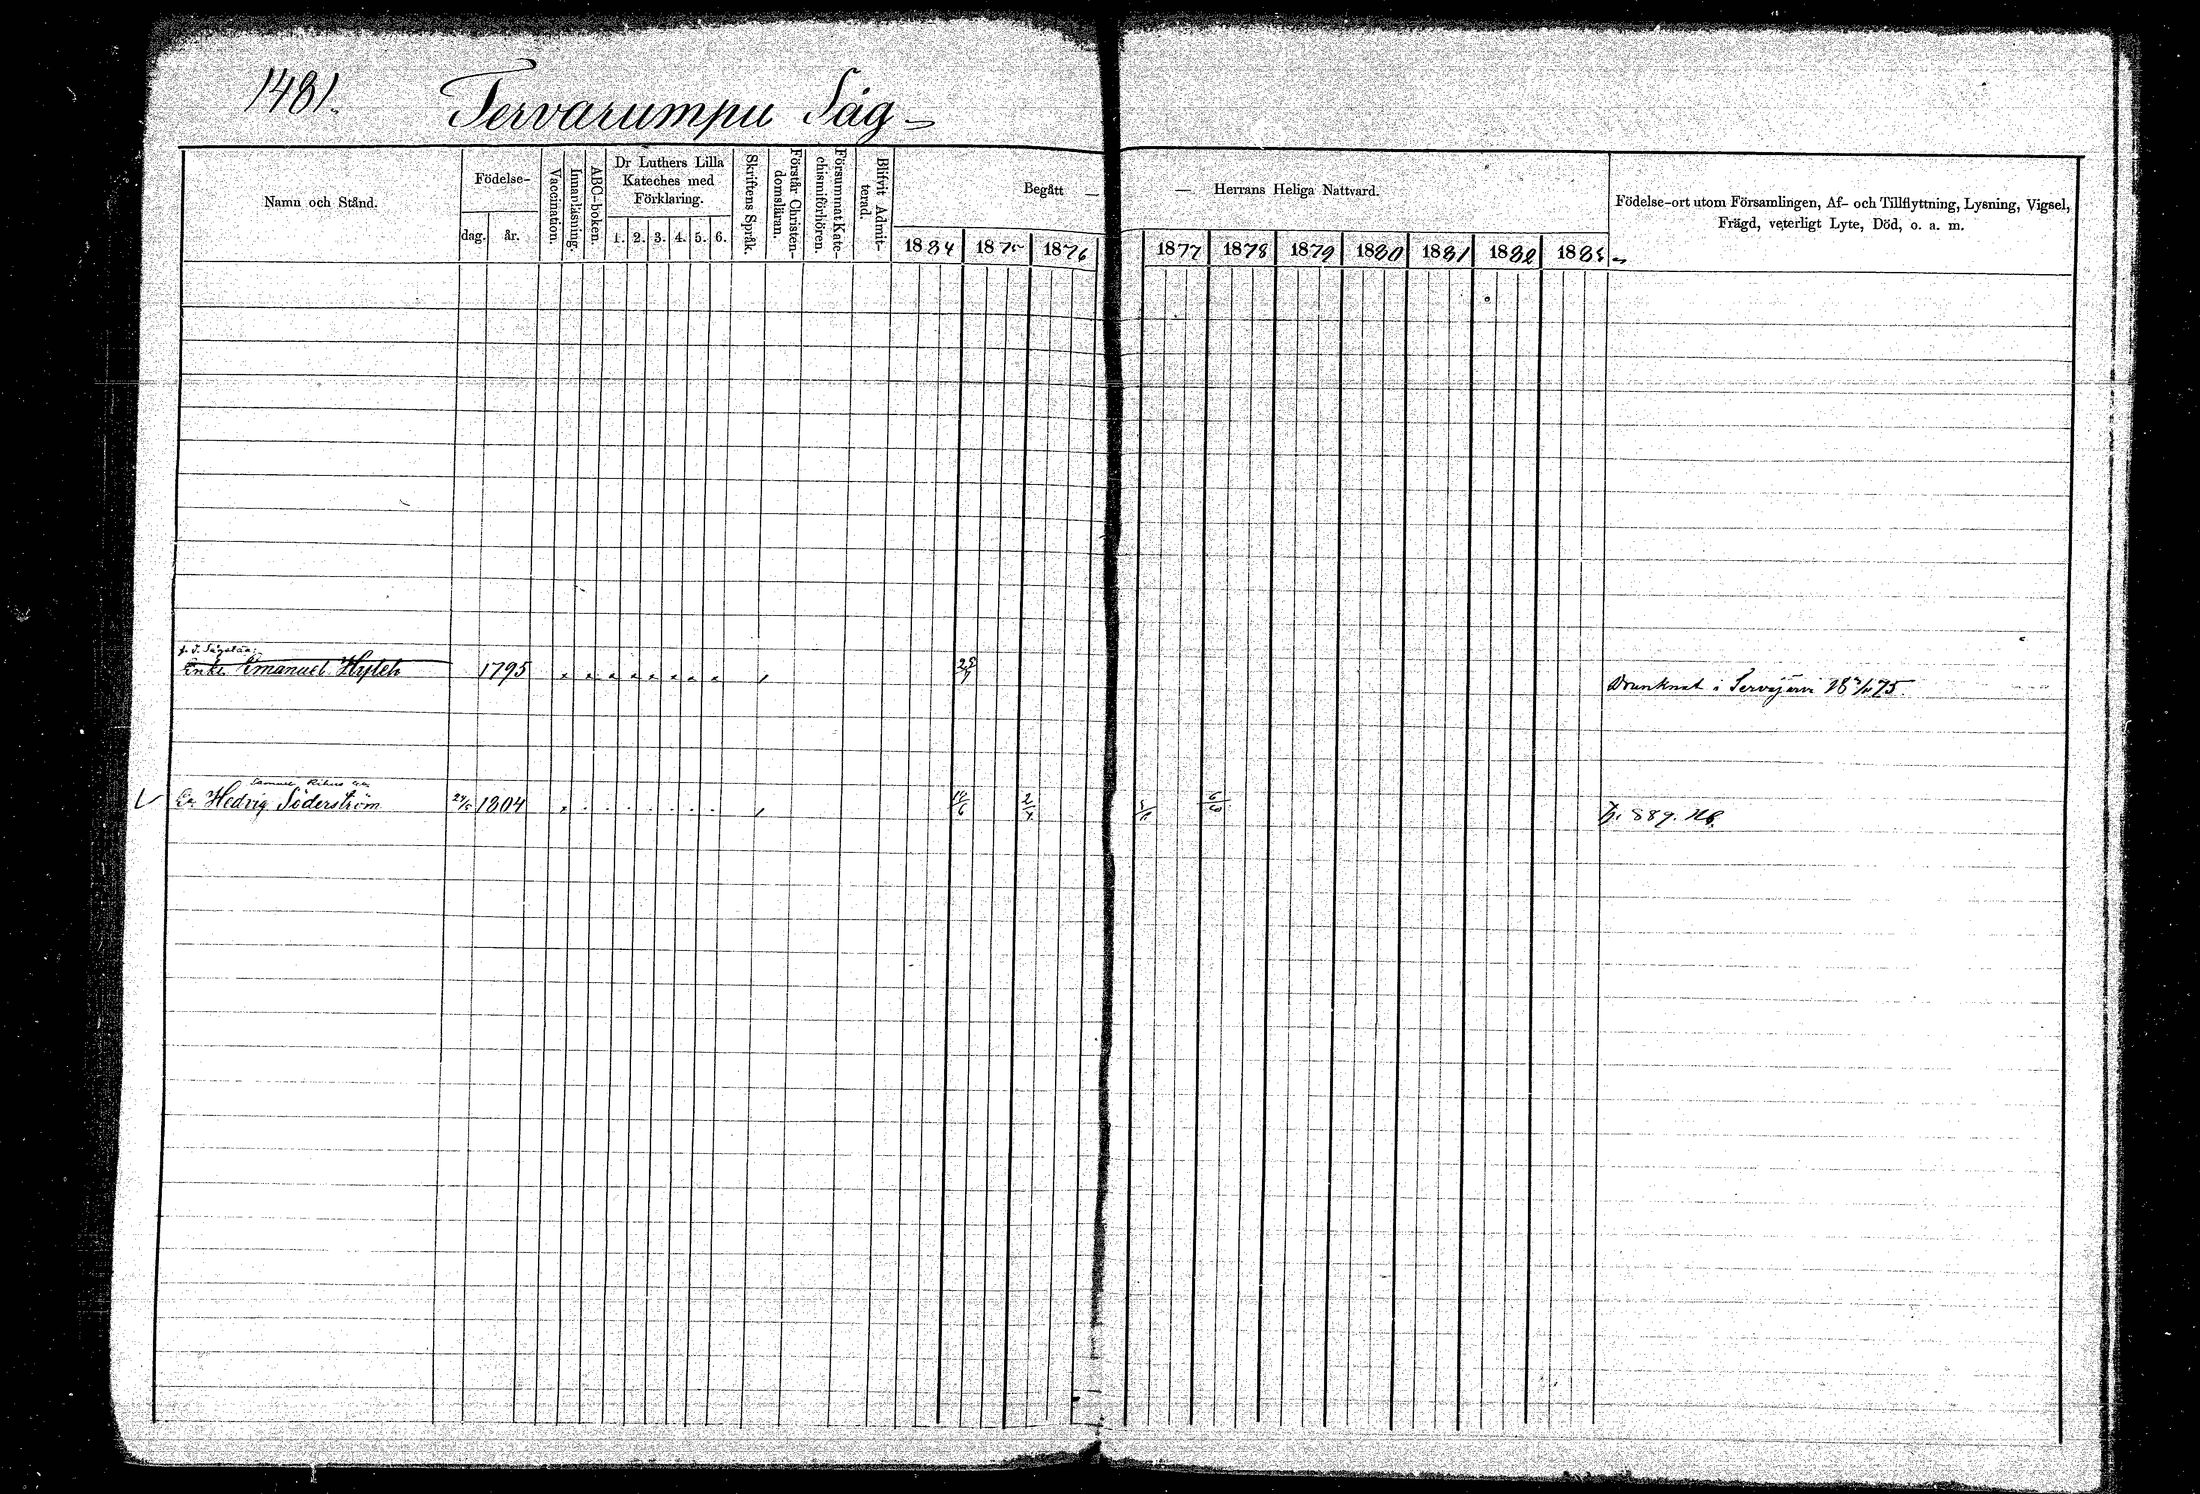 1481.
Tervarumpu Såg
Namn och Stånd.
Födelse-
dag. år.
Vaccination.
Innanläsning.
ABC-boken.
Dr Luthers Lilla
Kateches med
Förklaring.
1. 2. 3. 4. 5. 6.
Skriftens Språk.
Förstår Christen-
domsläran.
Försummat Kate-
chismiförhören.
Blifvit Admit-
terad.
Begått — — Herrans Heliga Nattvard.
1884 1875 1876 1877 1878 1879 1880 1881 1882 1883
Födelse-ort utom Församlingen, Af- och Tillflyttning, Lysning, Vigsel,
Frägd, veterligt Lyte, Död, o. a. m.
Enkl. Emanuel 1795
Drunknat i
Samuel
Hedvig Söderström 1804
p. 889.